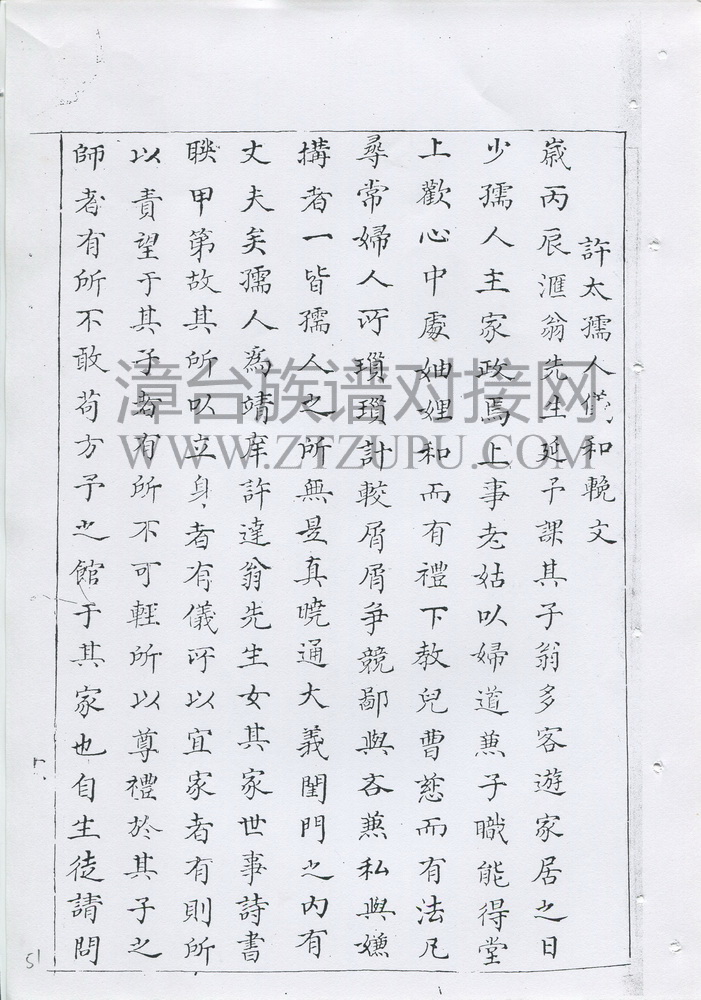 許太孺人儀和輓文
歲丙辰滙翁先生延予課其子翁多客遊家居之日
少孺人主家政焉上事老姑以婦道兼子職能得堂
上歡心中處妯娌和而有禮下教兒曹慈而有法凡
尋常婦人所瑣瑣計較屑屑爭競鄙與吝兼私與嫌
搆者一皆孺人之所無是真曉通大義閨門之內有
丈夫矣孺人為靖庠許達翁先生女其家世事詩書
聮甲第故其所以立身者有儀所以宜家者有則所
以責望于其子者有所不可輕所以尊禮於其子之
師者有所不敢苟方予之館于其家也自生徒請問
漳台族谱对接网
WWW.ZTZUPU.COM
51